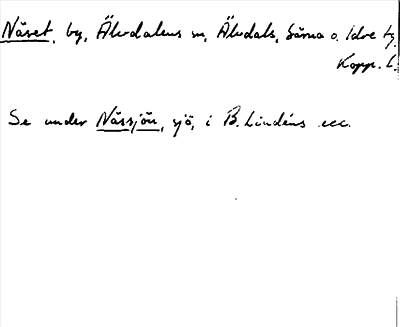 Näset, by, Älvdalens sn, Älvdals, Särna o. Idre tg,
Kopp. l.
Se under Nässjön, sjö, i B. Lindéns exc.